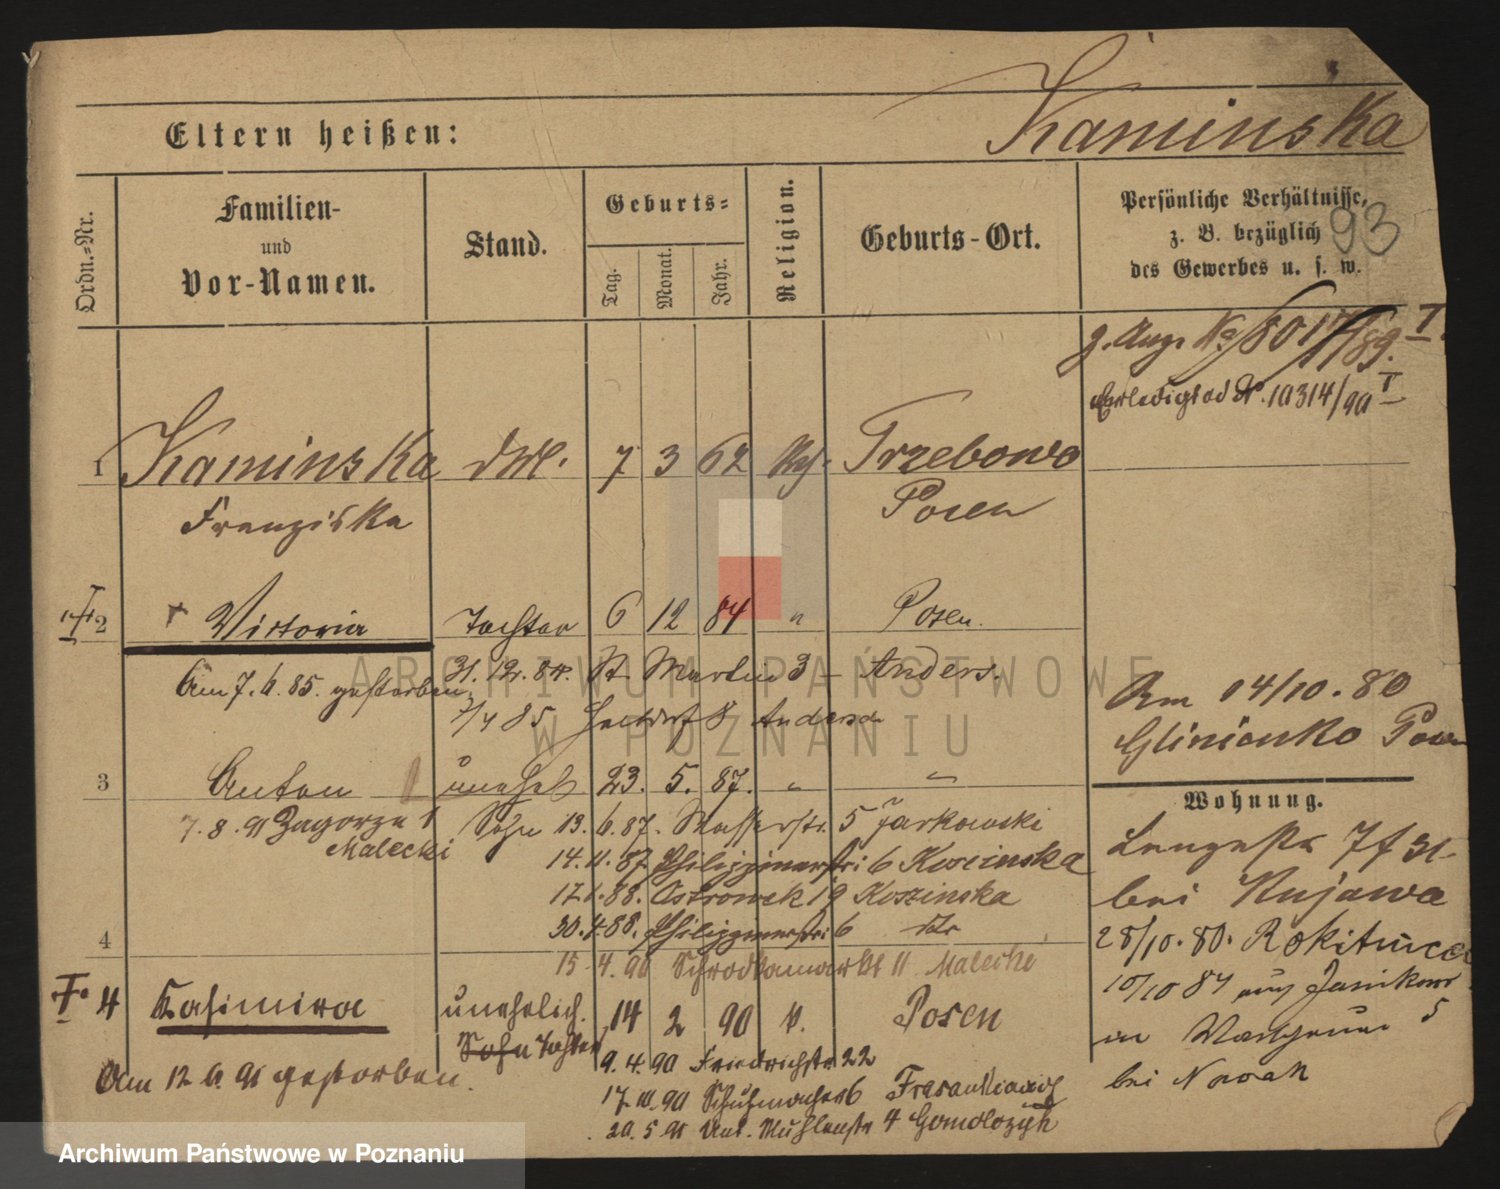 Eltern heißen:
Kaminska
Ordn.-Nr.
Familien-
und
Vor-Namen.
Stand.
Geburts-
Tag.
Monat.
Jahr.
Religion.
Geburts-Ort.
Persönliche Verhältnisse,
z. B. bezüglich
des Gewerbes u. s. w.
93
Erledigt ad No. 10314/90 I
1 Kaminska 7 3 62 Trzebowo
Franziska Posen
2 Victoria Tochter 6 12 84 " Posen.
Am 7. 6. 85. gestorben 31. 12. 84. St. Martin 3 - Anders.
7/4 85 8 Anders
Am 14/10. 80
Glinienko Posen
3 Anton unehel 23. 5. 87. " "
7. 8. 91 Zagorze 1 Sohn 13. 6. 87. Wasserstr. 5 Jarkowski
Malecki
14. 11. 87 Philippinerstr. 6 Koscinska
17. 1. 88. Ostrowek 19 Koszinska
30. 4. 88. Philippinerstr. 6 dto
4
15. 4. 90 Schrodkamarkt 11 Malecki
Wohnung.
Langestr 7
bei Kujawa
28/10. 80. Rokitnica
10/10 84 aus Janikowo
in 5
bei Nowak
4 Kasimira unehelich. 14 2 90 k. Posen
Sohn Tochter
Am 12 6. 91 gestorben.
9. 4. 90 Friedrichstr 22
17. 10. 90 Schuhmacher 6
20. 5 91 Unt. Mühlenstr 4 Gomolczyk
ARCHIWUM PAŃSTWOWE
W POZNANIU
Archiwum Państwowe w Poznaniu